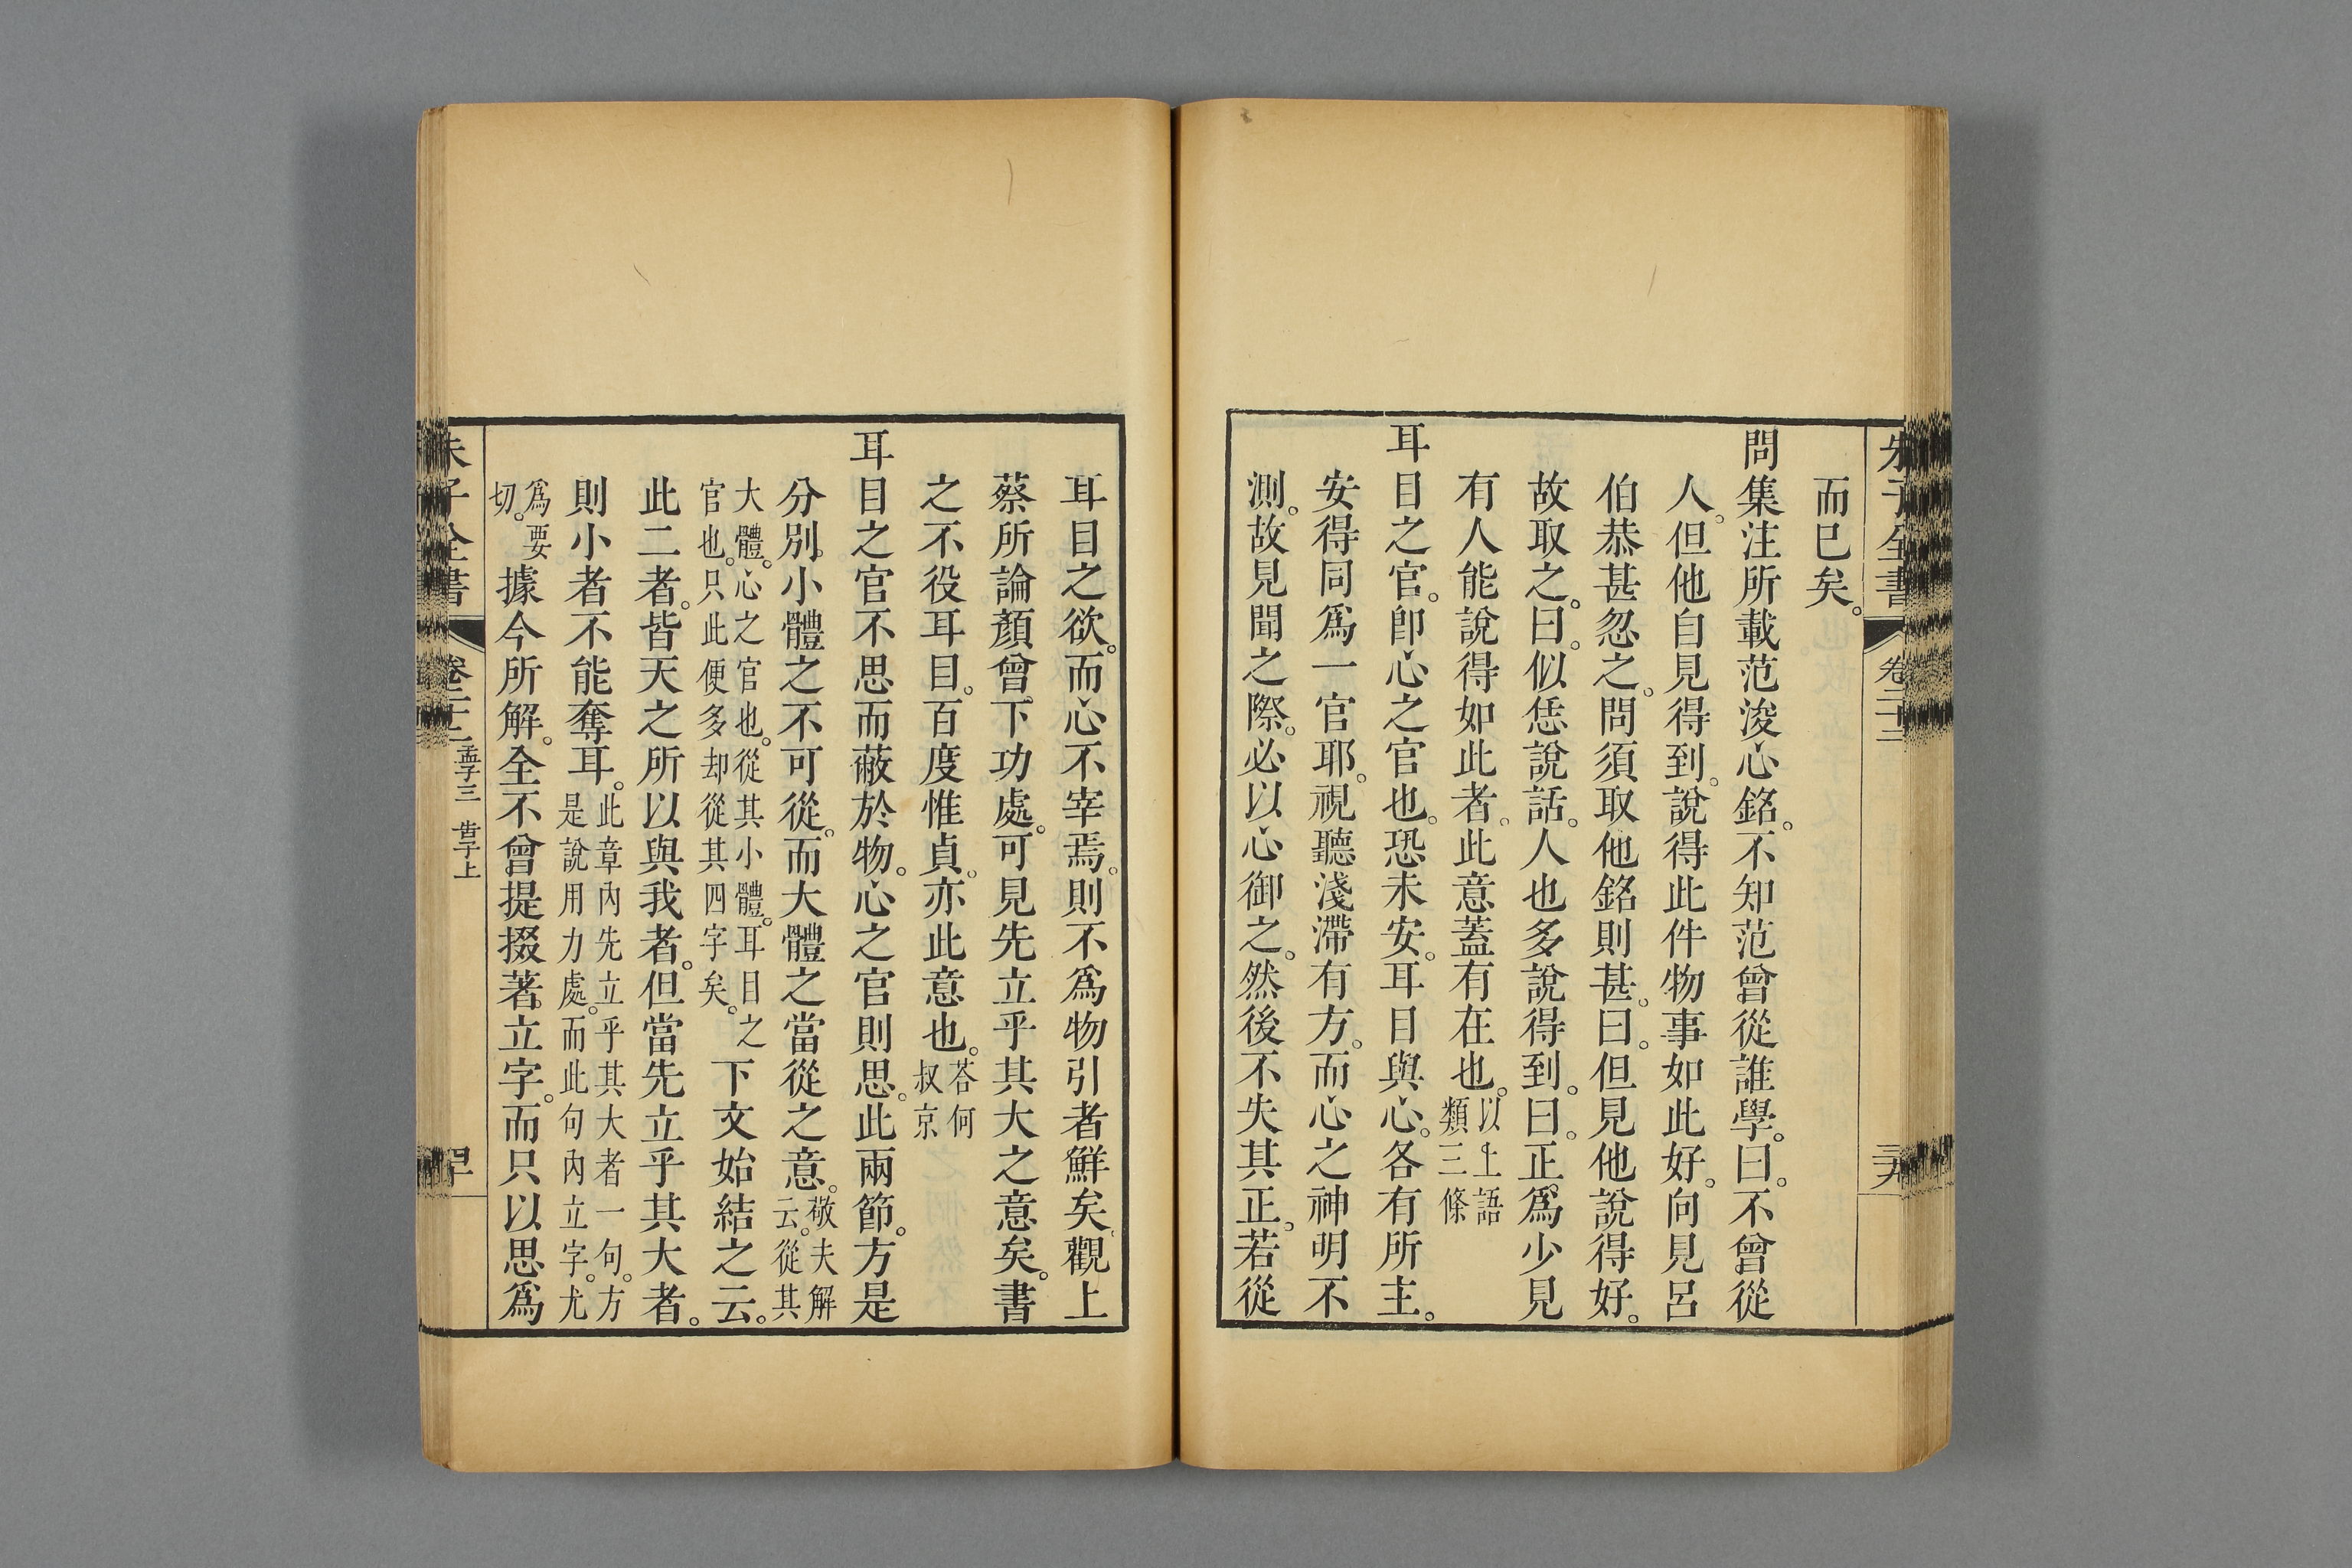 朱子全書 卷二十二 三九
而巳矣。
問集注所載范浚心銘。不知范曾從誰學。曰。不曾從
人。但他自見得到。說得此件物事如此好。向見呂
伯恭甚忽之。問須取他銘則甚。曰。但見他說得好。
故取之。曰。似恁說話。人也多說得到。曰。正爲少見
有人能說得如此者。此意蓋有在也。以上語類三條
耳目之官。卽心之官也。恐未安。耳目與心。各有所主。
安得同爲一官耶。視聽淺滯有方。而心之神明不
測。故見聞之際。必以心御之。然後不失其正。若從
耳目之欲。而心不宰焉。則不爲物引者鮮矣。觀上
蔡所論顏曾下功處。可見先立乎其大之意矣。書
之不役耳目。百度惟貞。亦此意也。荅何叔京
耳目之官不思而蔽於物。心之官則思。此兩節。方是
分別。小體之不可從。而大體之當從之意。敬夫解云。從其
大體。心之官也。從其小體。耳目之官也。只此便多却從其四字矣。下文始結之云。
此二者。皆天之所以與我者。但當先立乎其大者。
則小者不能奪耳。此章內先立乎其大者一句。方是說用力處。而此句內立字。尤
爲要切。據今所解。全不曾提掇著立字。而只以思爲
朱子全書 卷二十二 孟子三 告子上 四十